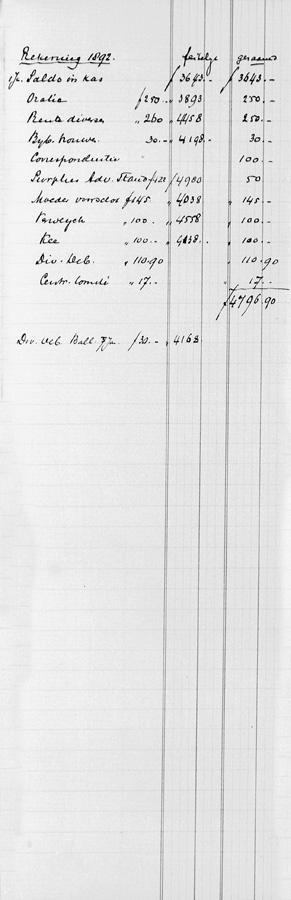 Rekening 1892. feitelijk geraamd
1/1. Saldo in kas f 3643.- f 3643.-
Oratie f 250.- „ 3893 250.-
Rente diverse „ 260 „ 4458 250.-
30.- „ 4198.- 30.-
Correspondentie 100.-
Surplus Adv. f 122 f 4980 50
Moeder f 145 „ 4038 „ 145.-
Verweych „ 100.- „ 4558 „ 100.-
Kee „ 100.- „ 4138.- „ 100.-
Div. Deb. „ 110.90 „ 110.90
Centr. „ 17.- „ 17.-
f 4796.90
Div. Deb. Ball. f 30.- „ 4168